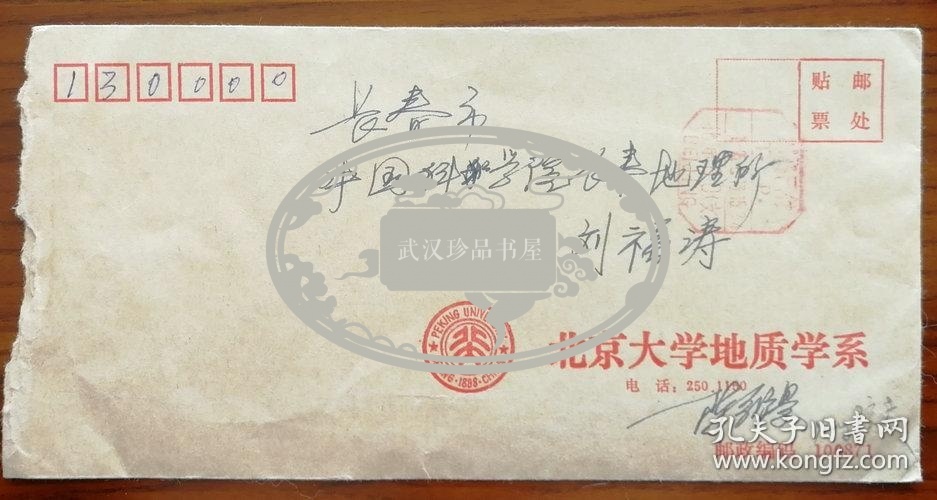 130000
贴 邮
票 处
长春市
中国科学院长春地理所
刘福涛
武汉珍品书屋
PEKING UNIV
1898
北京大学地质学系
电 话：250.1100
邮政编码 100871
孔夫子旧书网
www.kongfz.com